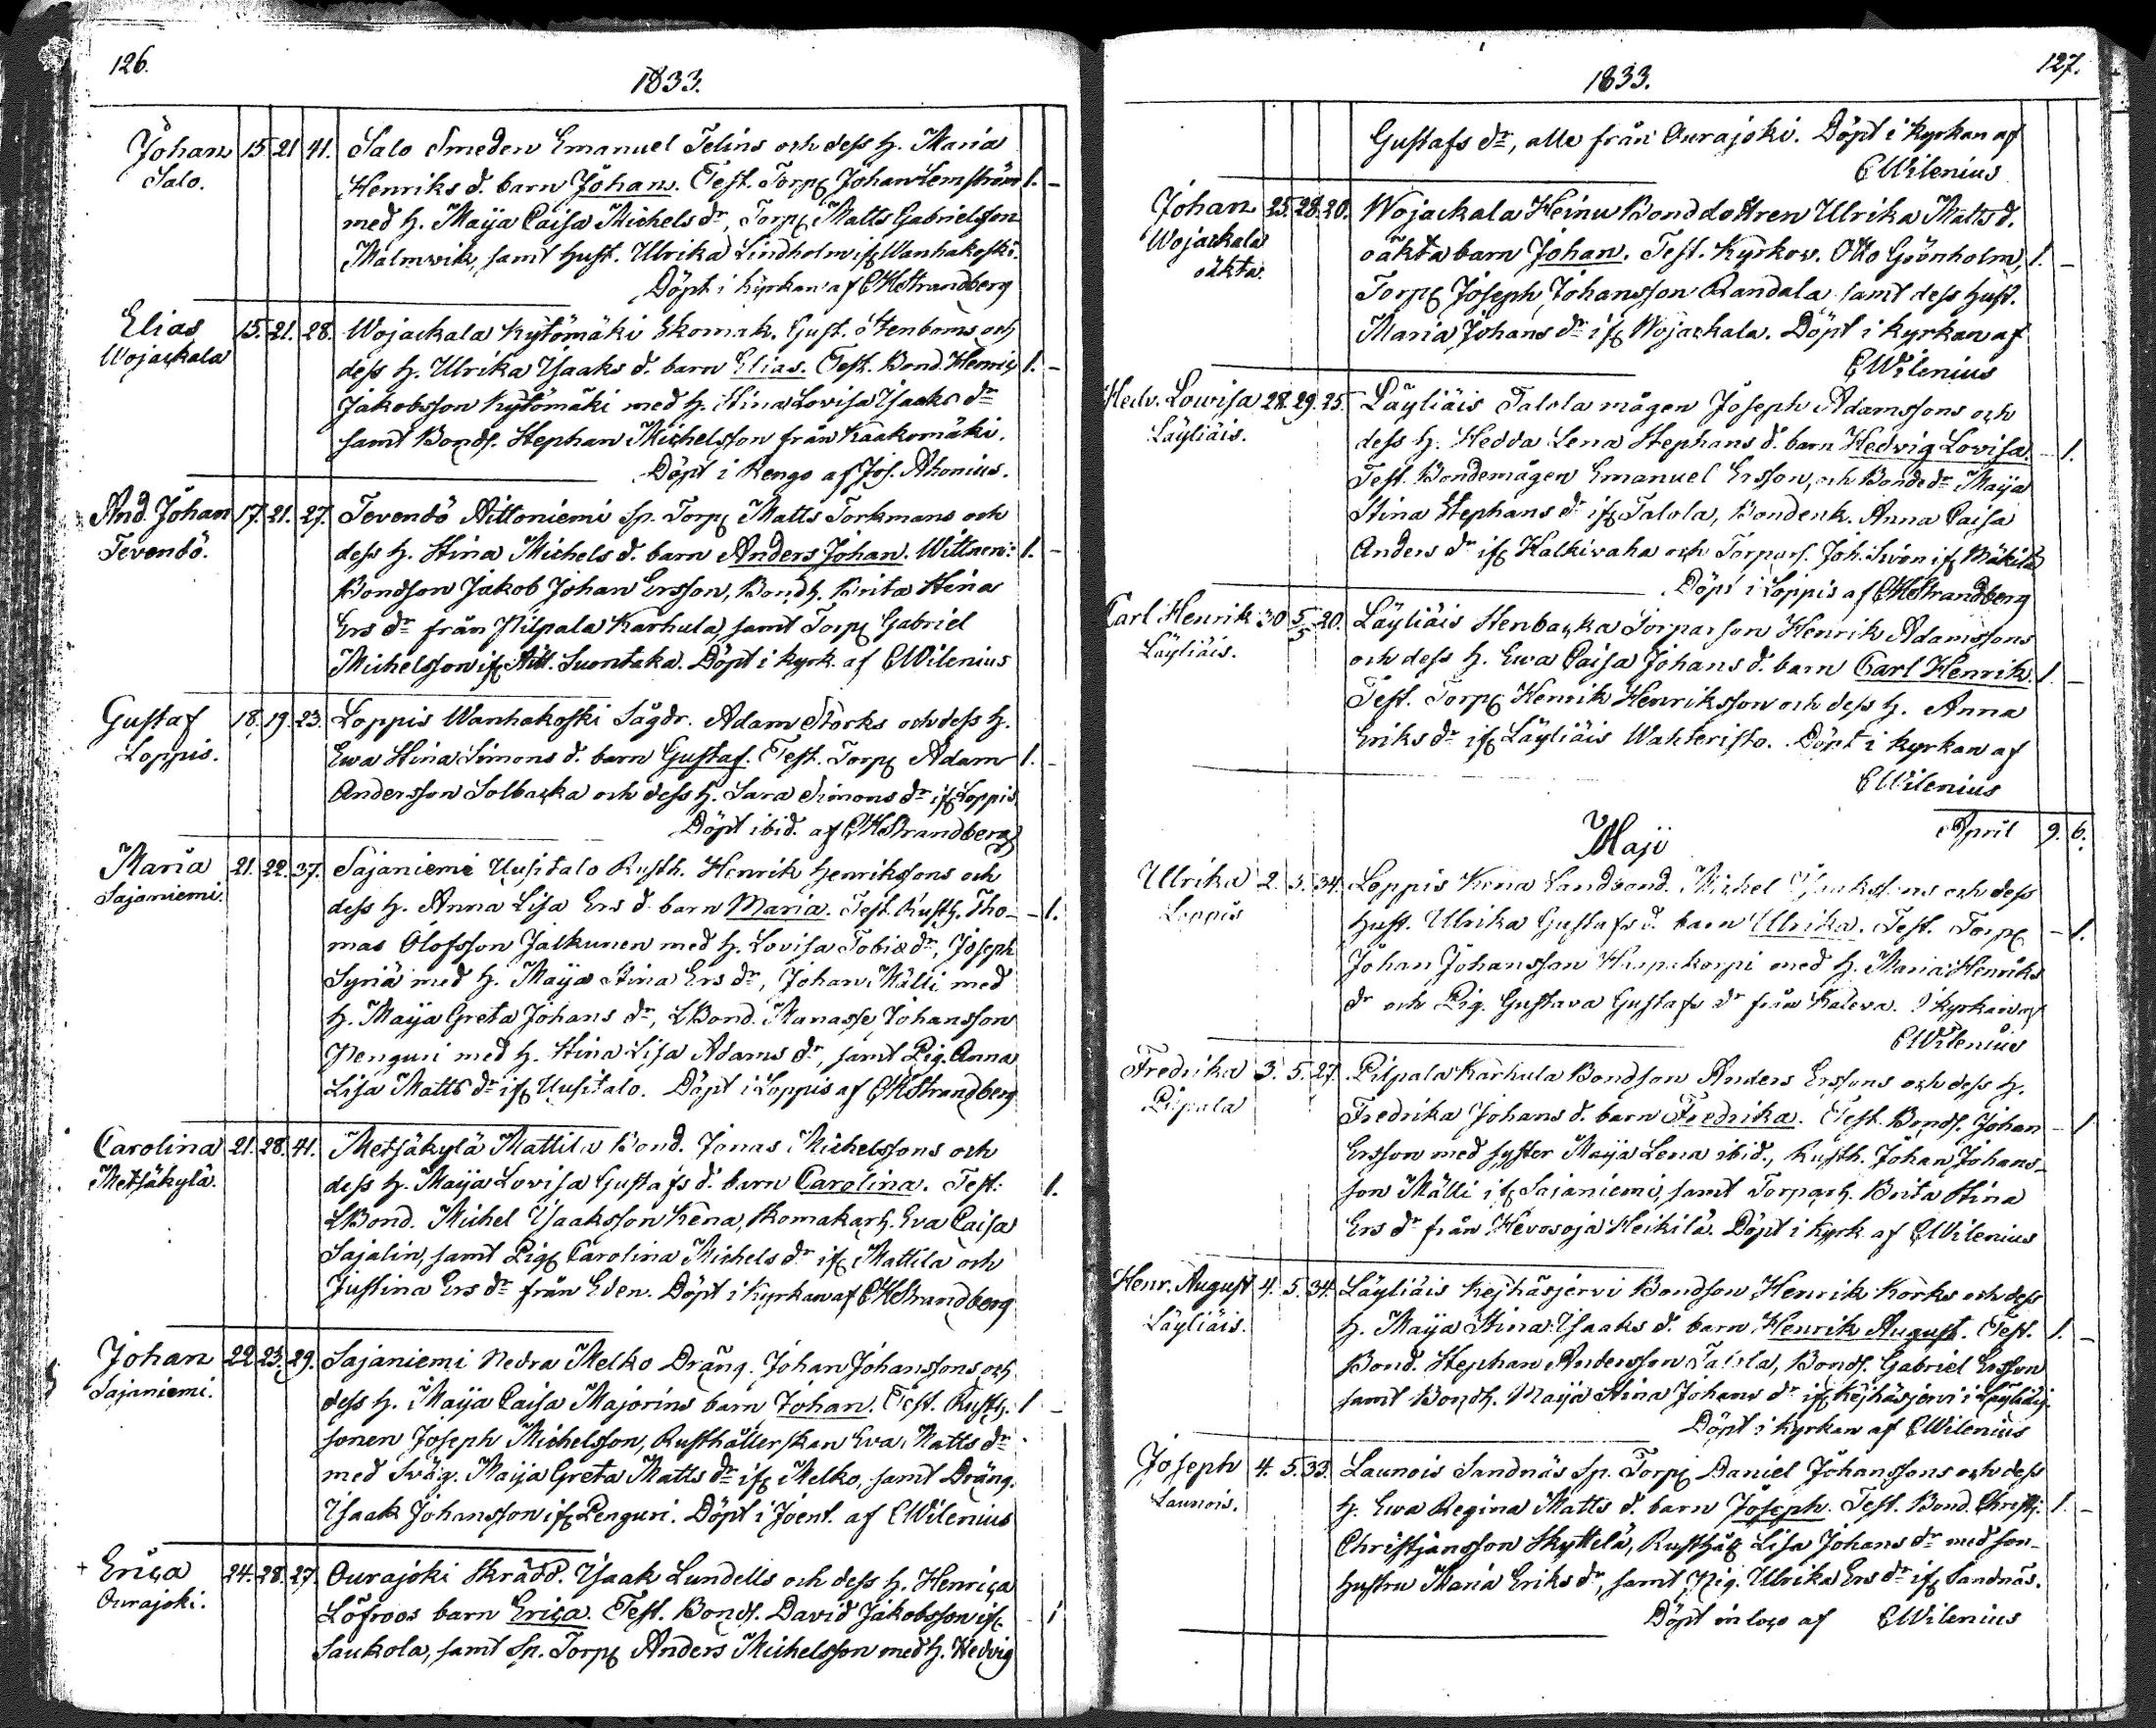 126.
1833.
Johan 15 21 41. Salo Smeden Emanuel Telins och dess h. Maria
Salo. Henriks d. barn Johan. Test. Torp. Johan Lemström 1. -
med h. Maija Caisa Michels dr, Torp. Matts Gabrielsson
Malmvik, samt hust. Ulrika Lindholm if. Wanhakoski.
Döpt i kyrkan af CHStrandberg
Elias 15. 21. 28. Wojackala Kytömäki Skomak. Gust. Stenboms och
Wojackala dess h. Ulrika Isaaks d. barn Elias. Test. Bond. Henric 1. -
Jakobsson Kytömäki med h. Stina Lovisa Isaaks dr
samt Bonds. Stephan Michelsson från Kaakomäki.
Döpt i Rengo af Jos. Ahonius.
And. Johan 17. 21. 27. Tevendö Aittoniemi Sp. Torp. Matts Torkmans och
Tevendö. dess h. Stina Michels d. barn Anders Johan. Wittnen: 1. -
Bondson Jakob Johan Ersson, Bondh. Brita Stina
Ers dr från Pilpala Karhula, samt Torp. Gabriel
Michelsson if. Aitt. Suontaka. Döpt i kyrk. af CWilenius
Gustaf 18. 19. 23. Loppis Wanhakoski Sågdr. Adam Storks och dess h.
Loppis. Ewa Stina Simons d. barn Gustaf. Test. Torp. Adam 1. -
Andersson Solbacka och dess h. Sara Simons dr if. Loppis
Döpt ibid. af CHStrandberg
Maria 21. 22. 37. Sajaniemi Uusitalo Rusth. Henrik Henrikssons och
Sajaniemi. dess h. Anna Lisa Ers d. barn Maria. Test. Rusth. Tho- - 1.
mas Olofsson Jalkunen med h. Lovisa Tobiæ dr, Joseph
Syriä med h. Maija Stina Ers dr, Johan Mälli med
h. Maija Greta Johans dr, LBond. Manasse Johansson
Penguri med h. Stina Lisa Adams dr, samt Pig. Anna
Lisa Matts dr if. Uusitalo. Döpt i Loppis af CHStrandberg
Carolina 21. 28. 41. Metsäkylä Mattila Bond. Jonas Michelssons och
Metsäkylä. dess h. Maija Lovisa Gustafs d. barn Carolina. Test: 1.
LBond. Michel Isaaksson Kena, Skomakarh. Eva Caisa
Sajalin, samt Pig. Carolina Michels dr if. Mattila och
Justina Ers dr från Eden. Döpt i Kyrkan af CHStrandberg
Johan 22 23. 29. Sajaniemi Nedra Melko Dräng. Johan Johanssons och
Sajaniemi. dess h. Maija Caisa Majorins barn Johan. Test. Rusth. 1 -
sonen Joseph Michelsson, Rusthållerskan Eva Matts dr
med Swäg. Maija Greta Matts dr if. Melko, samt Dräng.
Isaak Johansson if. Penguri. Döpt i Joent. af CWilenius
+ Erica 24. 28. 27. Ourajoki Skrädd. Isaak Lundells och dess h. Henrica
Ourajoki. Löfroos barn Erica. Test. Bonds. David Jakobsson if. - 1
Saukola, samt Sp. Torp. Anders Michelsson med h. Hedvig
127.
1833.
Gustafs dr, alla från Ourajoki. Döpt i Kyrkan af
CWilenius
Johan 25. 28. 20. Wojackala Heinu Bonddottren Ulrika Matts d.
Wojackala oäkta barn Johan. Test. Kyrkov. Otto Grönholm, 1. -
oäkta. Torp. Joseph Johansson Randala samt dess hust.
Maria Johans dr if. Wojackala. Döpt i kyrkan af
CWilenius
Hedv. Lowisa 28. 29. 25. Läyliäis Talola mågen Joseph Adamssons och
Läyliäis. dess h. Hedda Lena Stephans d. barn Hedvig Lovisa. - 1.
Test. Bondemågen Emanuel Ersson, och Bondedr Maija
Stina Stephans dr if. Talola, Bondenk. Anna Caisa
Anders dr if. Halkivaha och Torpars. Joh. Sivén if. Mäkilä
Döpt i Loppis af CHStrandberg
Carl Henrik 30 5/5 20. Läyliäis Stenbacka Torparson Henrik Adamssons
Läyliäis. och dess h. Ewa Caisa Johans d. barn Carl Henrik. 1. -
Test. Torp. Henrik Henriksson och dess h. Anna
Eriks dr if. Läyliäis Wahteristo. Döpt i kyrkan af
CWilenius
April 9. 6.
Maji
Ullrika 2. 5. 34. Loppis Kena Landbond. Michel Isaakssons och dess
Loppis hust. Ulrika Gustafs d. barn Ulrika. Test. Torp. - 1.
Johan Johansson Haapakorpi med h. Maria Henriks
dr och Pig. Gustava Gustafs dr från Kaleva. I kyrkan af
CWilenius
Fredrika 3. 5. 27. Pilpala Karhula Bondson Anders Erssons och dess h.
Pilpala Fredrika Johans d. barn Fredrika. Test. Bonds. Johan - 1
Ersson med syster Maija Lena ibid., Rusth. Johan Johans-
son Mälli if. Sajaniemi, samt Torparh. Brita Stina
Ers dr från Hevosoja Heikilä. Döpt i kyrk. af CWilenius
Henr. August 4. 5. 34. Läyliäis Kejhäsjervi Bondson Henrik Korks och dess
Läyliäis. h. Maija Stina Isaaks d. barn Henrik August. Test. 1. -
Bond. Stephan Andersson Talola, Bonds. Gabriel Ersson
samt Bondh. Maija Stina Johans dr if. Kejhäsjervi i Läyliäis.
Döpt i kyrkan af CWilenius
Joseph 4. 5. 33. Launois Sandnäs Sp. Torp. Daniel Johanssons och dess
Launois. h. Ewa Regina Matts d. barn Joseph. Test. Bond. Christj. 1. -
Christjansson Skyttelä, Rusthåll. Lisa Johans dr med son-
hustru Maria Eriks dr, samt Pig. Ulrika Ers dr if. Sandnäs.
Döpt in loco af CWilenius